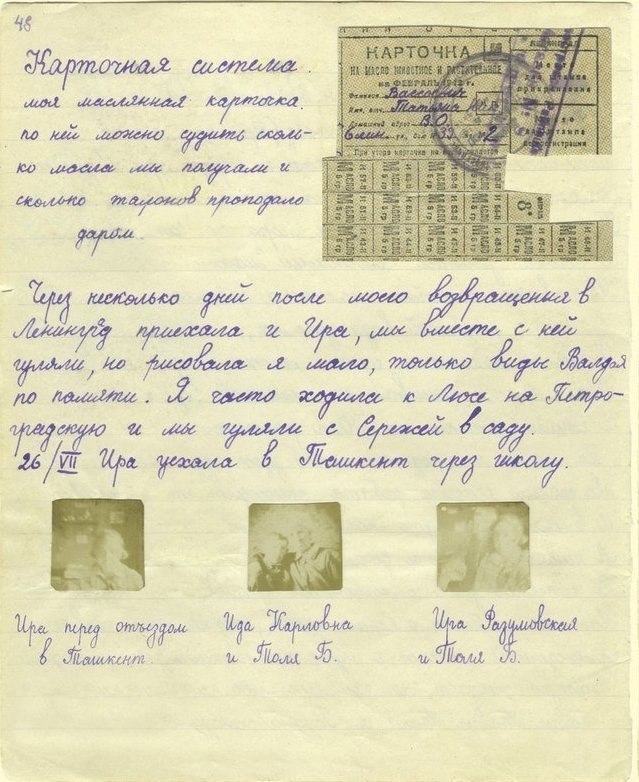 48
Карточная система.
моя маслянная карточка.
по ней можно судить сколь-
ко масла мы получали и
сколько талонов пропадало
даром.
КАРТОЧКА
НА МАСЛО ЖИВОТНОЕ И РАСТИТЕЛЬНОЕ
на ФЕВРАЛЬ
Татьяна
В.О.
При утере карточка не
Через несколько дней после моего возвращенья в
Ленинград приехала и Ира, мы вместе с ней
гуляли, но рисовала я мало, только виды Валдая
по памяти. Я часто ходила к Люсе на Петро-
градскую и мы гуляли с Сережей в саду.
26/VII Ира уехала в Ташкент через школу.
Ира перед отъездом
в Ташкент.
Ида Карловна
и Толя Б.
Ира Разумовская
и Толя Б.